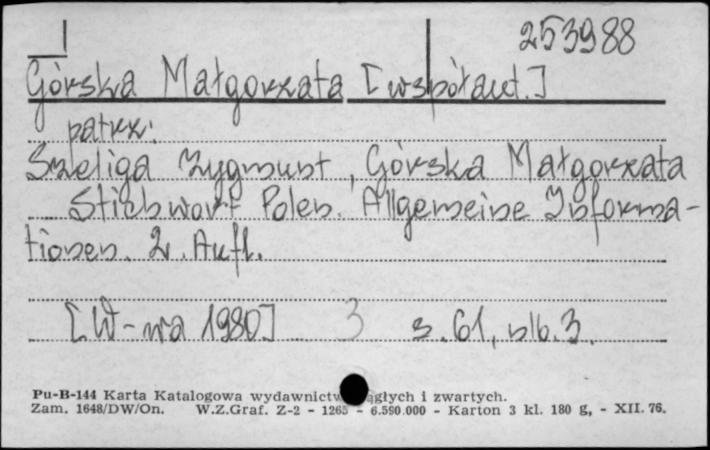 253988
Górska Małgorzata [współaut.]
patrz:
Szeliga Zygmunt, Górska Małgorzata
Stichwort Polen. Allgemeine Informa-
tionen. 2. Aufl.
[W-wa 1980] 3 s. 61, nlb. 3.
Pu-B-144 Karta Katalogowa wydawnictw ągłych i zwartych.
Zam. 1648/DW/On. W.Z.Graf. Z-2 - 1265 - 6.590.000 - Karton 3 kl. 180 g, - XII. 76.